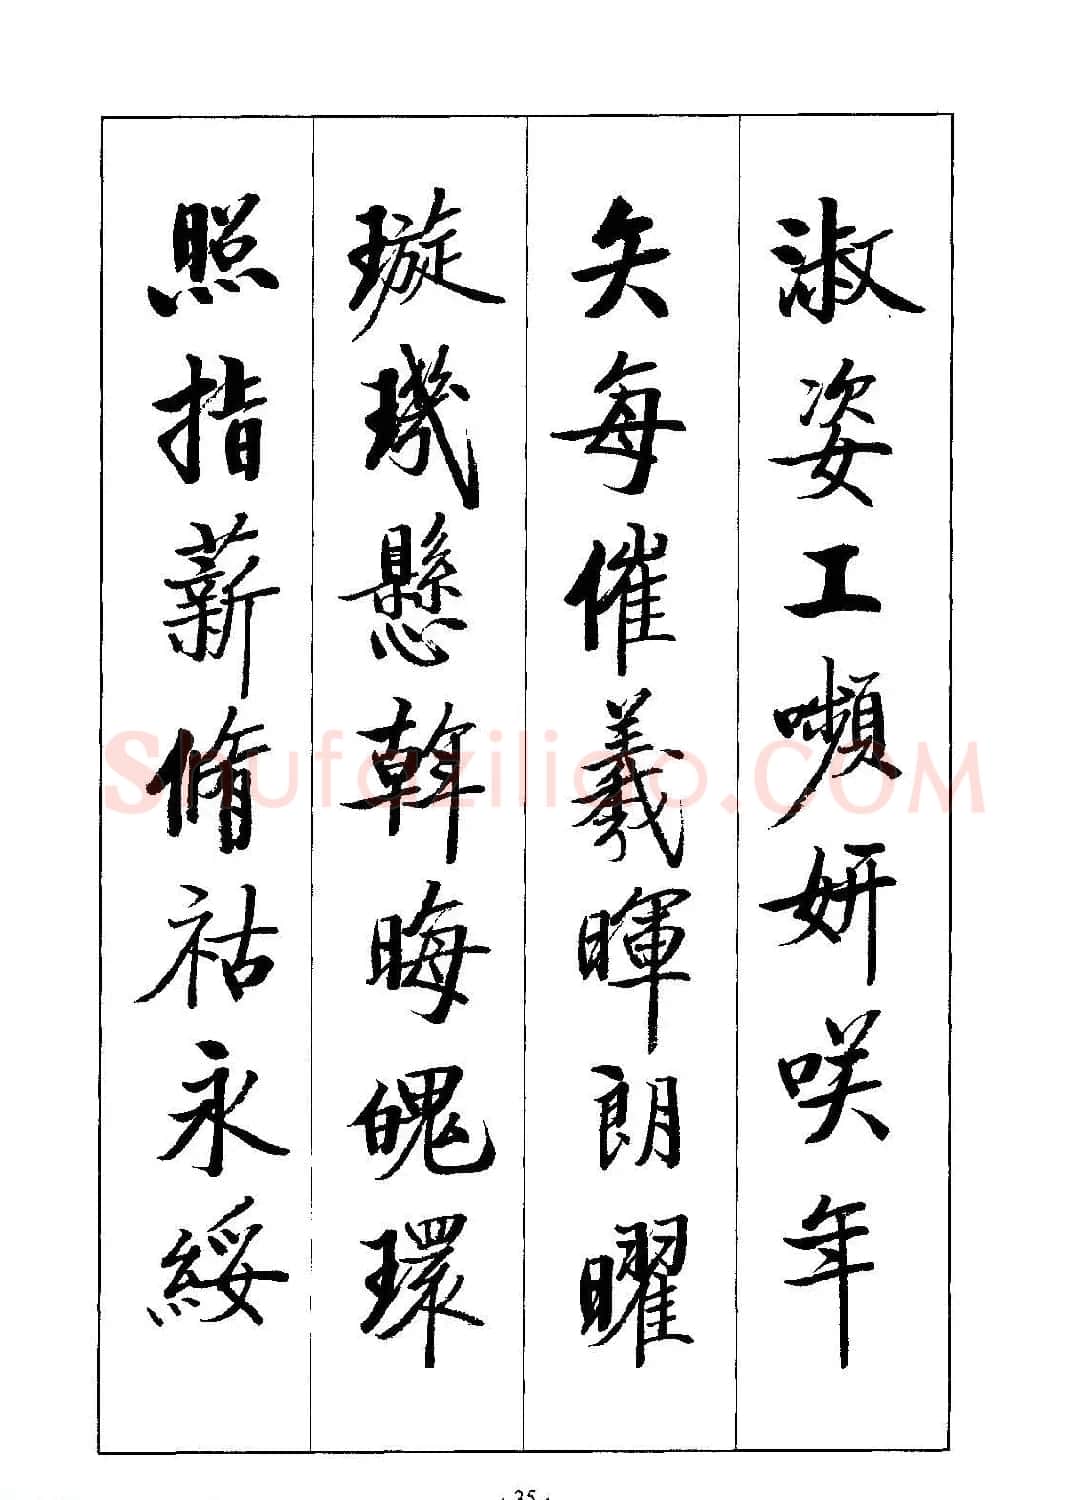 淑姿工嚬妍咲年
矢每催羲暉朗曜
璇璣懸斡晦魄環
照指薪脩祜永綏
Shufaziliao.COM
· 35 ·